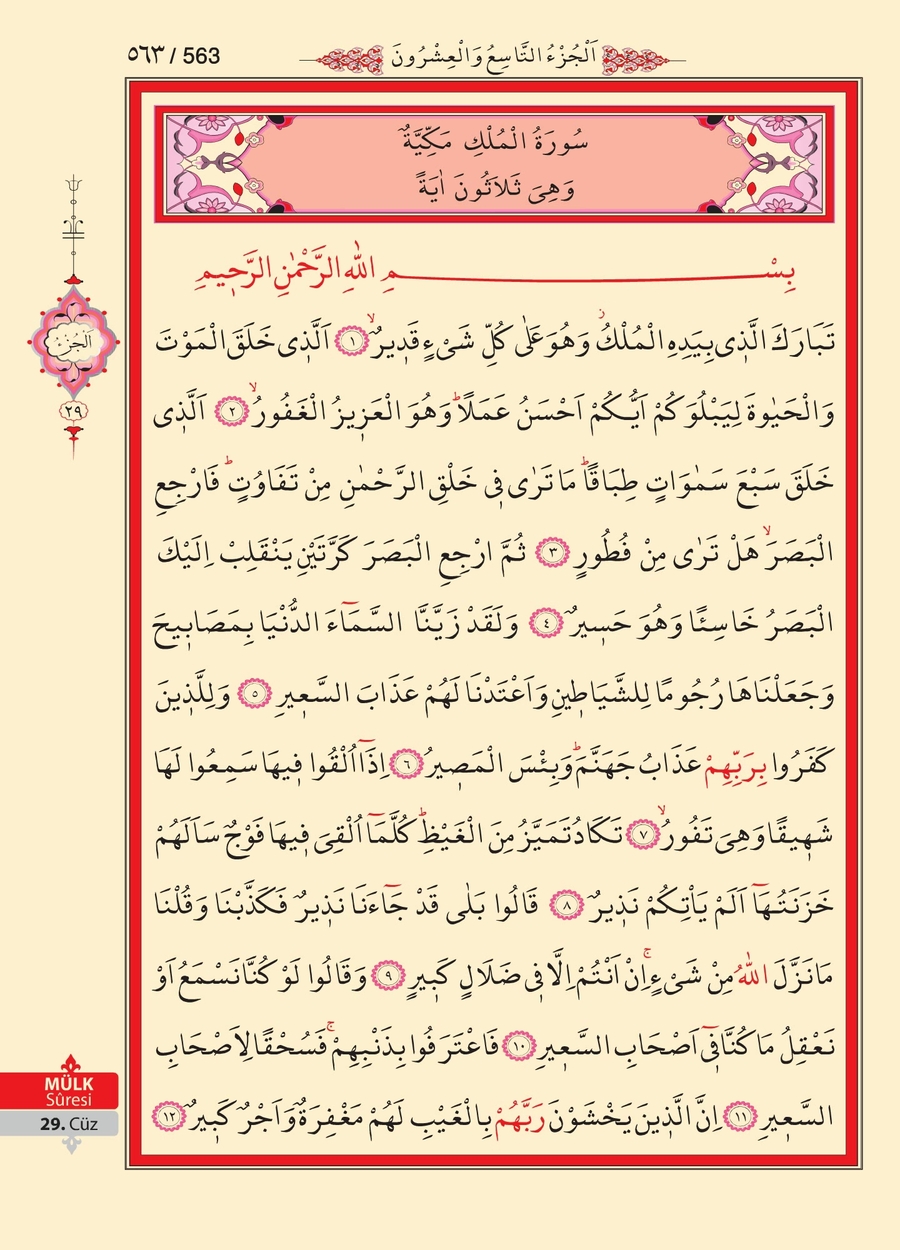 اَلْجُزْءُ التَّاسِعُ وَالْعِشْرُونَ
٥٦٣ / 563
سُورَةُ الْمُلْكِ مَكِّيَّةٌ
وَهِىَ ثَلَاثُونَ اٰيَةً
بِسْمِ اللّٰهِ الرَّحْمٰنِ الرَّحٖيمِ
تَبَارَكَ الَّذٖى بِيَدِهِ الْمُلْكُ وَهُوَ عَلٰى كُلِّ شَىْءٍ قَدٖيرٌۙ ﴿١﴾ اَلَّذٖى خَلَقَ الْمَوْتَ
وَالْحَيٰوةَ لِيَبْلُوَكُمْ اَيُّكُمْ اَحْسَنُ عَمَلًاؕ وَهُوَ الْعَزٖيزُ الْغَفُورُۙ ﴿٢﴾ اَلَّذٖى
خَلَقَ سَبْعَ سَمٰوَاتٍ طِبَاقًاؕ مَا تَرٰى فٖى خَلْقِ الرَّحْمٰنِ مِنْ تَفَاوُتٍؕ فَارْجِعِ
الْبَصَرَۙ هَلْ تَرٰى مِنْ فُطُورٍ ﴿٣﴾ ثُمَّ ارْجِعِ الْبَصَرَ كَرَّتَيْنِ يَنْقَلِبْ اِلَيْكَ
الْبَصَرُ خَاسِئًا وَهُوَ حَسٖيرٌ ﴿٤﴾ وَلَقَدْ زَيَّنَّا السَّمَٓاءَ الدُّنْيَا بِمَصَابٖيحَ
وَجَعَلْنَاهَا رُجُومًا لِلشَّيَاطٖينِ وَاَعْتَدْنَا لَهُمْ عَذَابَ السَّعٖيرِ ﴿٥﴾ وَلِلَّذٖينَ
كَفَرُوا بِرَبِّهِمْ عَذَابُ جَهَنَّمَؕ وَبِئْسَ الْمَصٖيرُ ﴿٦﴾ اِذَٓا اُلْقُوا فٖيهَا سَمِعُوا لَهَا
شَهٖيقًا وَهِىَ تَفُورُۙ ﴿٧﴾ تَكَادُ تَمَيَّزُ مِنَ الْغَيْظِؕ كُلَّمَٓا اُلْقِىَ فٖيهَا فَوْجٌ سَاَلَهُمْ
خَزَنَتُهَٓا اَلَمْ يَاْتِكُمْ نَذٖيرٌ ﴿٨﴾ قَالُوا بَلٰى قَدْ جَٓاءَنَا نَذٖيرٌ فَكَذَّبْنَا وَقُلْنَا
مَا نَزَّلَ اللّٰهُ مِنْ شَىْءٍۚ اِنْ اَنْتُمْ اِلَّا فٖى ضَلَالٍ كَبٖيرٍ ﴿٩﴾ وَقَالُوا لَوْ كُنَّا نَسْمَعُ اَوْ
نَعْقِلُ مَا كُنَّا فٖٓى اَصْحَابِ السَّعٖيرِ ﴿١٠﴾ فَاعْتَرَفُوا بِذَنْبِهِمْۚ فَسُحْقًا لِاَصْحَابِ
السَّعٖيرِ ﴿١١﴾ اِنَّ الَّذٖينَ يَخْشَوْنَ رَبَّهُمْ بِالْغَيْبِ لَهُمْ مَغْفِرَةٌ وَاَجْرٌ كَبٖيرٌ ﴿١٢﴾
اَلْجُزْءُ
٢٩
MÜLK
Sûresi
29. Cüz